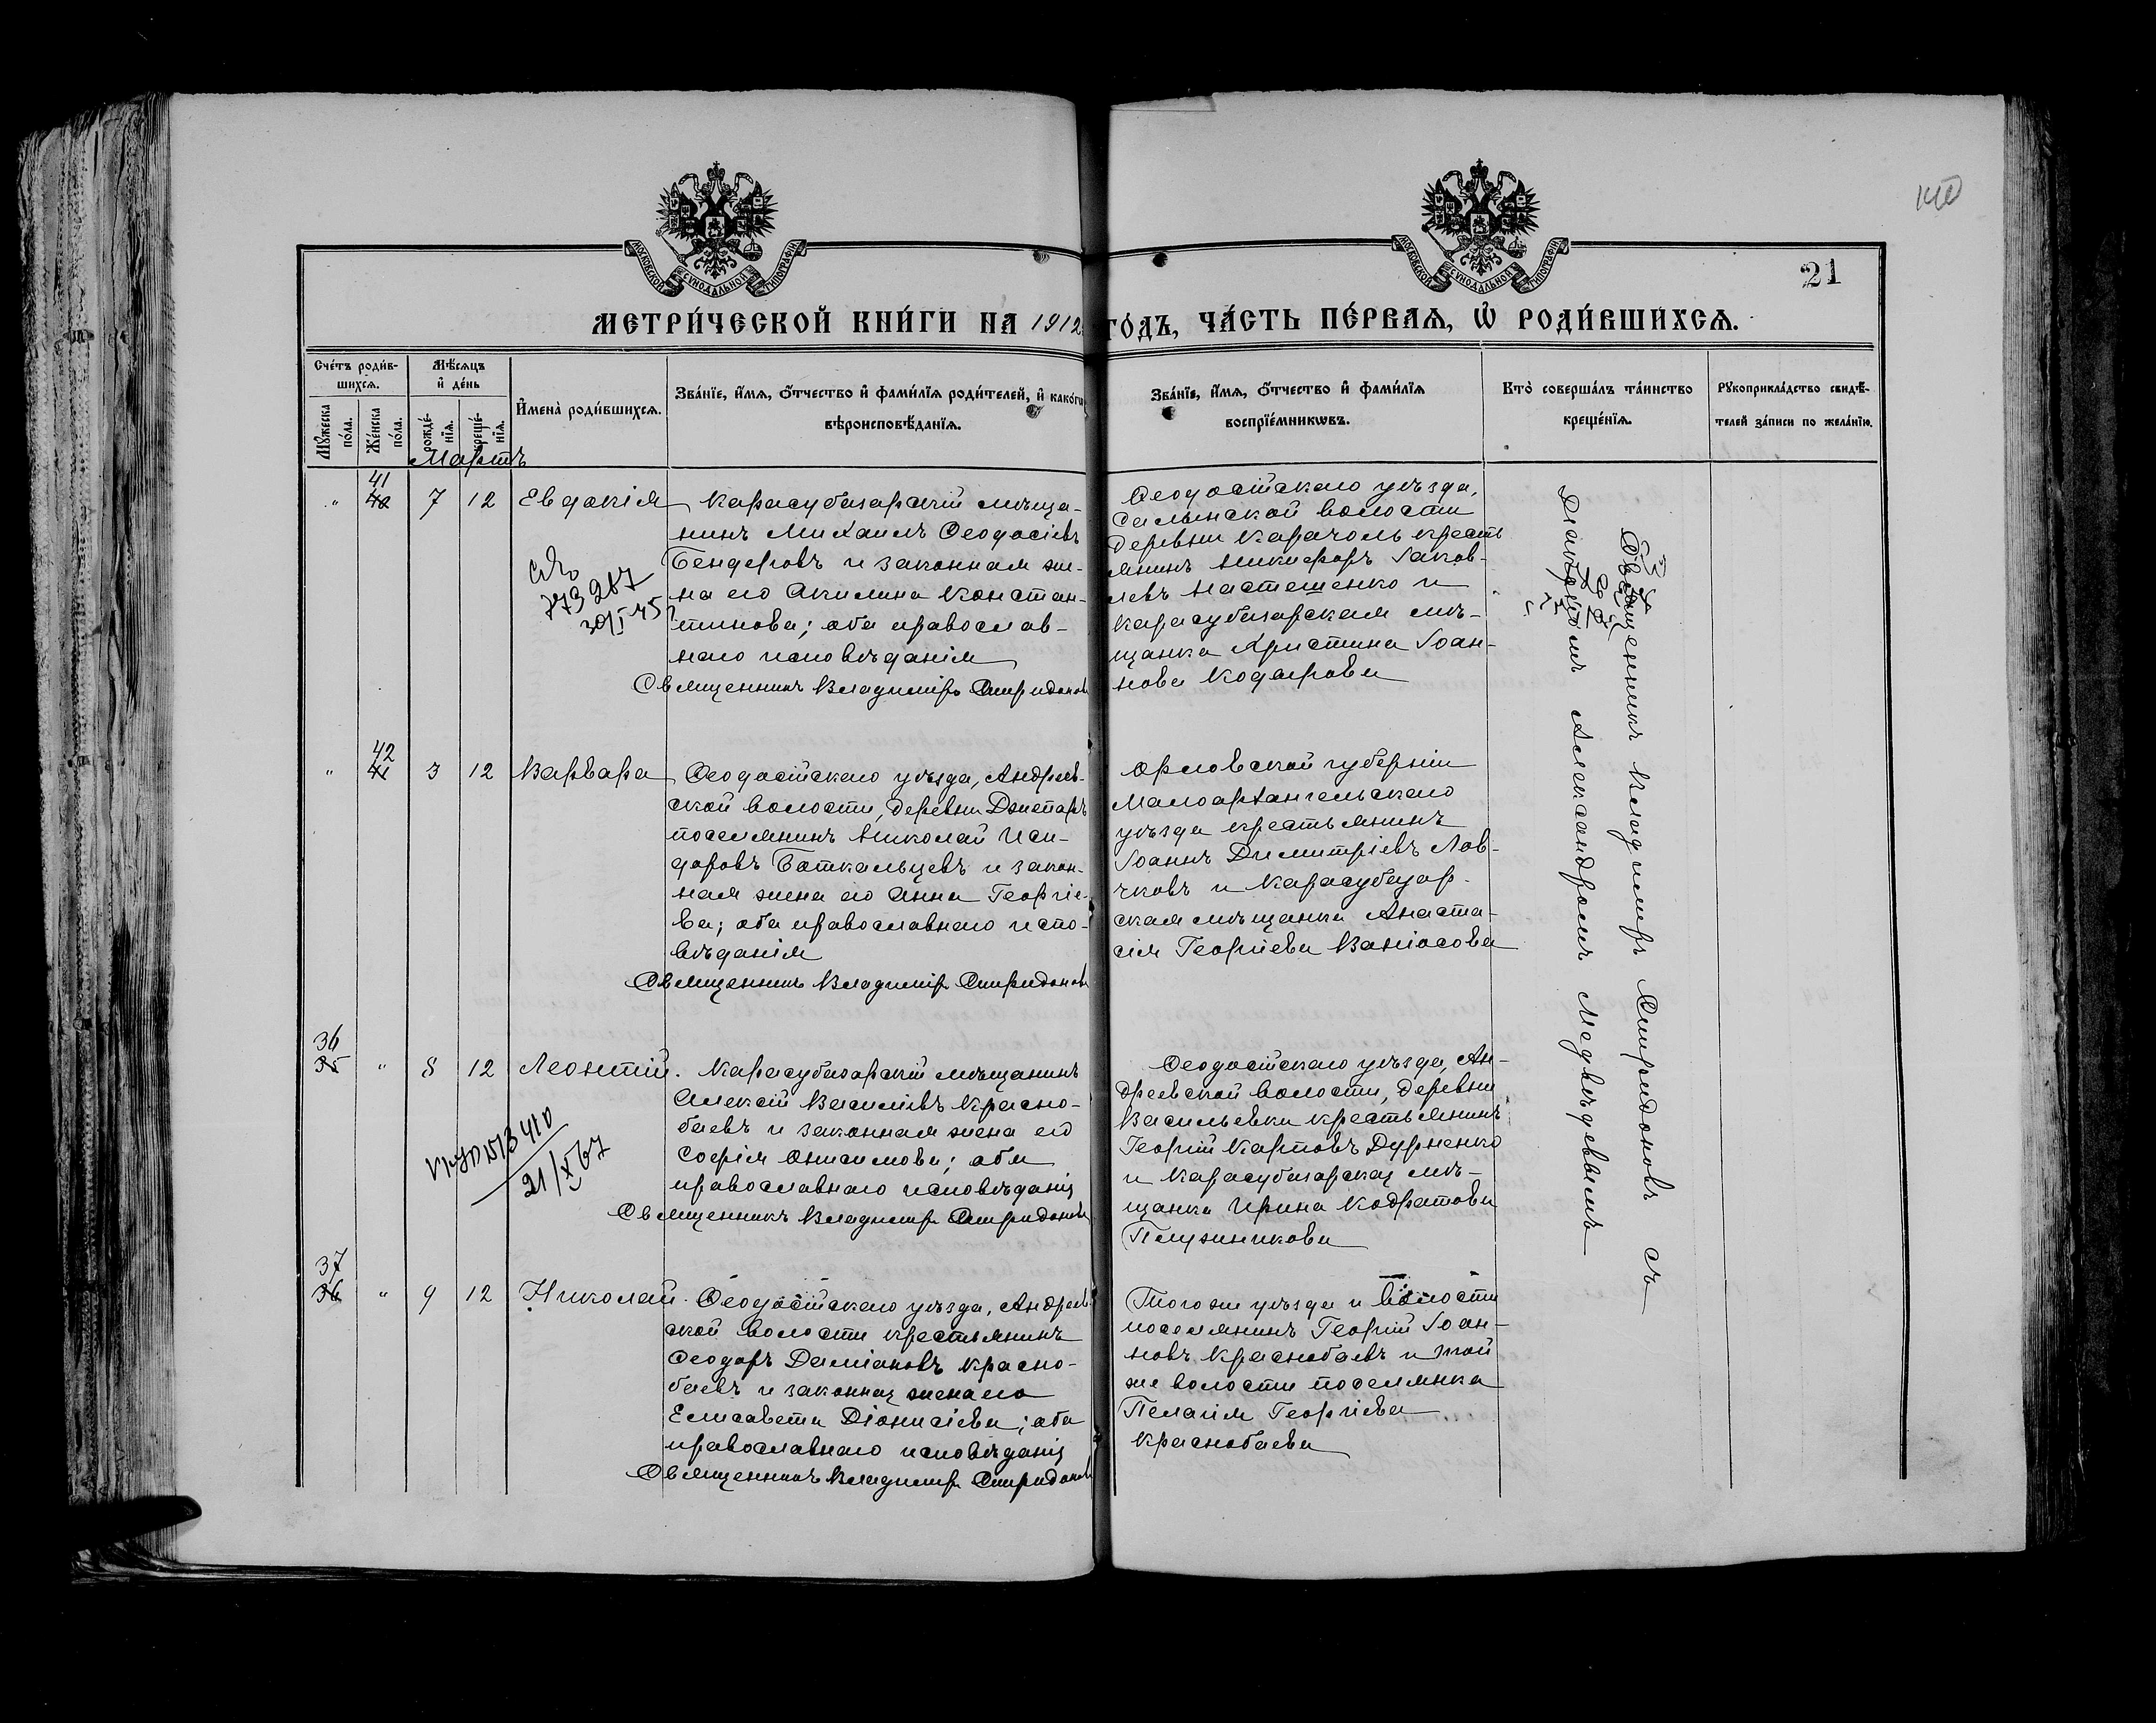 МОСКОВСКОЙ СѴНОДАЛЬНОЙ ТИПОГРАФІИ
МОСКОВСКОЙ СѴНОДАЛЬНОЙ ТИПОГРАФІИ
21
МЕТРИ́ЧЕСКОЙ КНИ́ГИ НА 1912 ГО́ДЪ, ЧА́СТЬ ПЕ́РВАѦ, Ѡ҆ РОДИ́ВШИХСѦ.
Сче́тъ роди́в-
шихсѧ.
Мꙋ́жеска
по́ла.
Же́нска
по́ла.
Мѣ́сѧцъ
и҆ де́нь
рожде́-
нїѧ.
креще́-
нїѧ.
И҆мена̀ роди́вшихсѧ.
Зва́нїе, и҆́мѧ, ѻ҆́тчество и҆ фами́лїѧ роди́телей, и҆ како́гѡ
вѣроисповѣ́данїѧ.
Зва́нїе, и҆́мѧ, ѻ҆́тчество и҆ фами́лїѧ
воспрїе́мникѡвъ.
Кто̀ соверша́лъ та́инство
креще́нїѧ.
Рꙋкоприкла́дство свидѣ́-
телей за́писи по жела́нїю.
Мартъ
41
40
" 7 12 Евдокія
Карасубазарскій мѣща-
нинъ Михаилъ Ѳеодосіевъ
Бендеровъ и законная же-
на его Акилина Констан-
тинова; оба православ-
наго исповѣданія
Священникъ Владиміръ Спиридоновъ
773287
30/I 45
Ѳеодосійскаго уѣзда,
Салынской волости
деревни Карачоль кресть
янинъ Никифоръ Іаков-
левъ Настешенко и
Карасубазарская мѣ-
щанка Христина Іоан-
нова Кодарова
42
41
" 3 12 Варвара
Ѳеодосійскаго уѣзда, Андреев-
ской волости, деревни Джепаръ
поселянинъ Николай Иси-
доровъ Боткальцевъ и закон-
ная жена его Анна Георгіе-
ва; оба православнаго испо-
вѣданія
Священникъ Владиміръ Спиридоновъ
Орловской губерніи
Малоархангельскаго
уѣзда крестьянинъ
Іоаннъ Димитріевъ Лов-
чковъ и Карасубазар-
ская мѣщанка Анаста-
сія Георгіева Ваніосова
36
35
" 8 12 Леонтій.
Карасубазарскій мѣщанинъ
Алексій Василіевъ Красно-
баевъ и законная жена его
Софія Онисимова; оба
православнаго исповѣданія
Священникъ Владиміръ Спиридоновъ
21/X 67
Ѳеодосійскаго уѣзда, Ан-
дреевской волости, деревни
Васильевки крестьянинъ
Георгій Карповъ Дурненко
и Карасубазарская мѣ-
щанка Ирина Кодратова
Плужникова
37
36
" 9 12 Николай.
Ѳеодосійскаго уѣзда, Андреев-
ской волости крестьянинъ
Ѳеодоръ Даміановъ Красно-
баевъ и законная жена его
Елисавета Діонисіева; оба
православнаго исповѣданія
Священникъ Владиміръ Спиридоновъ
Того же уѣзда и волости
поселянинъ Георгій Іоан-
новъ Краснобаевъ и той
же волости поселянка
Пелагія Георгіева
Краснобаева
Священникъ Владимиръ Спиридоновъ съ
діакономъ Александромъ Медвѣдевымъ